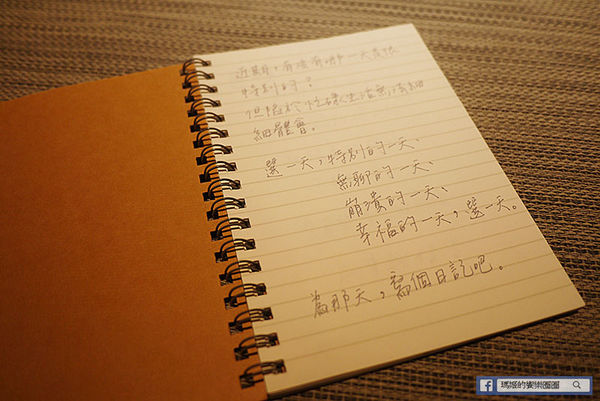 近期，有沒有哪一天是很
特別的？
但限於忙碌生活無法細
細體會。
選一天，特別的一天、
無聊的一天、
崩潰的一天、
幸福的一天，選一天。
為那天，寫個日記吧。
瑪姬的饗樂團團